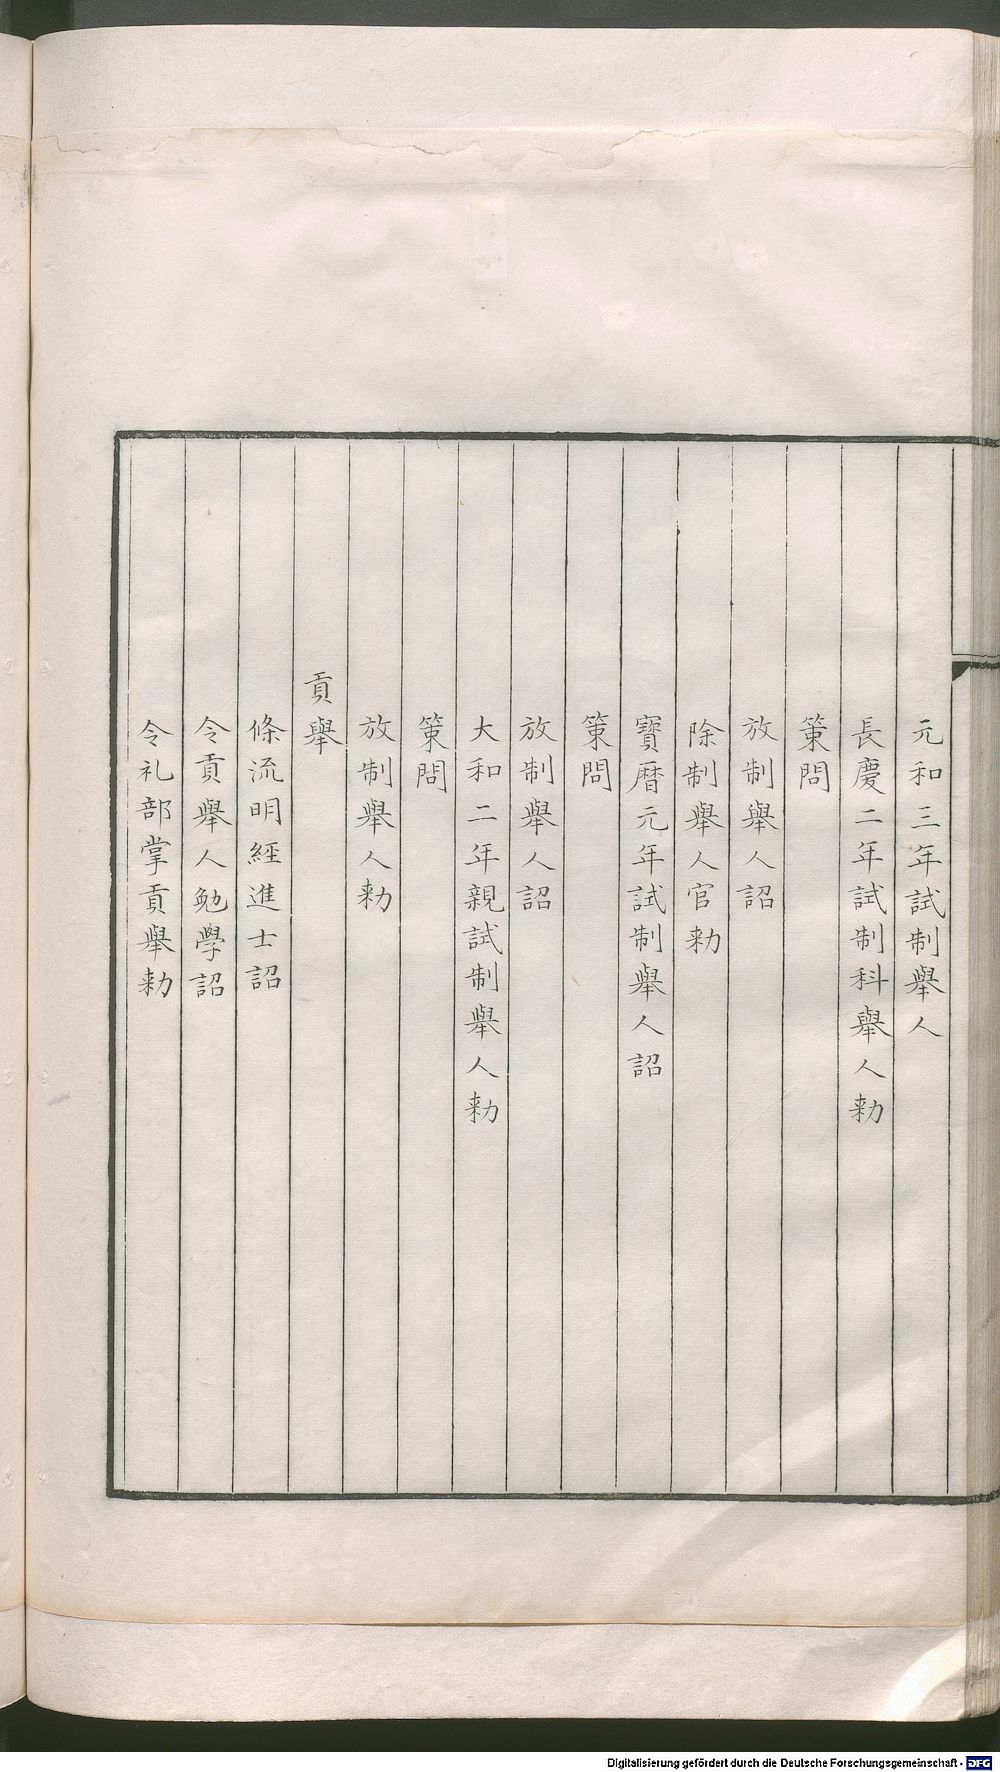 元和三年試制舉人
長慶二年試制科舉人勑
策問
放制舉人詔
除制舉人官勑
寶曆元年試制舉人詔
策問
放制舉人詔
大和二年親試制舉人勑
策問
放制舉人勑
貢舉
條流明經進士詔
令貢舉人勉學詔
令礼部掌貢舉勑
Digitalisierung gefördert durch die Deutsche Forschungsgemeinschaft - DFG